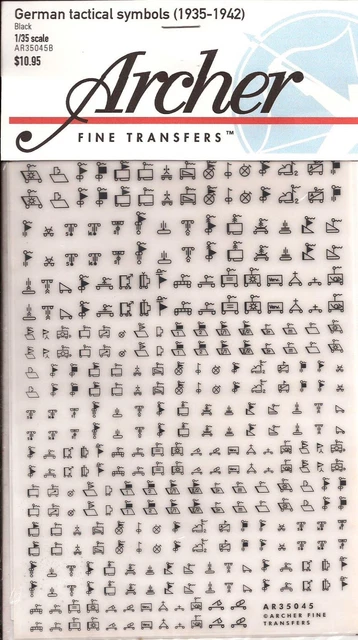 German tactical symbols (1935-1942)
Black
1/35 scale
AR35045B
$10.95
Archer
FINE TRANSFERS™
AR35045
©ARCHER FINE
TRANSFERS